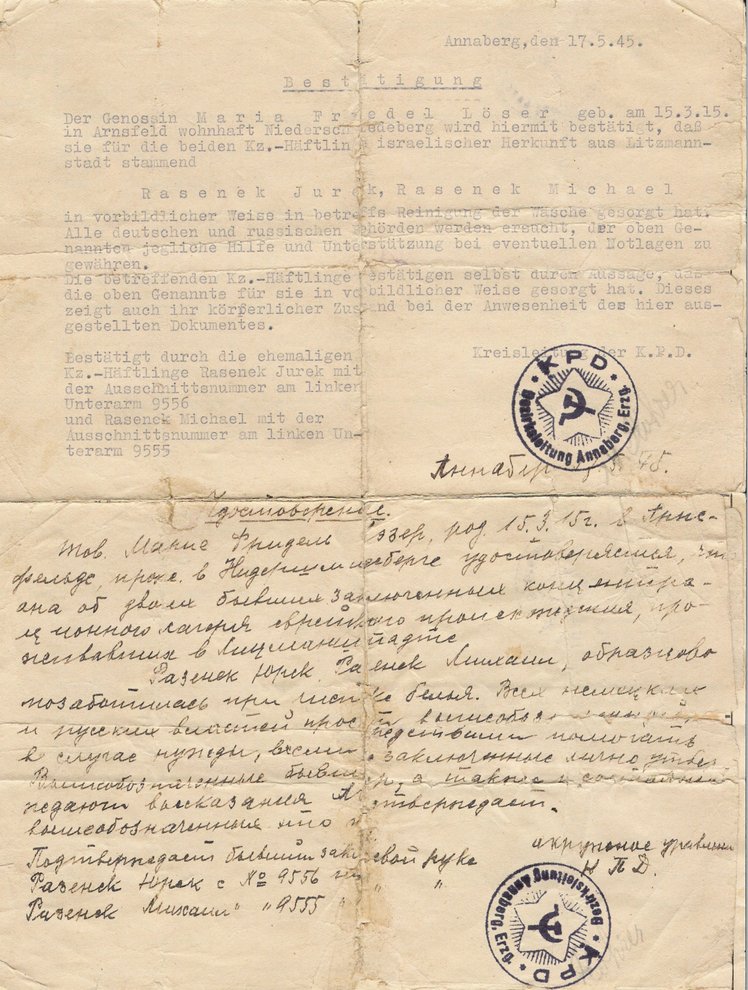 Annaberg,den 17.5.45.
Bestätigung
Der Genossin Maria Friedel Löser geb. am 15.3.15.
in Arnsfeld wohnhaft Niederschmiedeberg wird hiermit bestätigt, daß
sie für die beiden Kz.-Häftlinge israelischer Herkunft aus Litzmann-
stadt stammend
Rasenek Jurek, Rasenek Michael
in vorbildlicher Weise in betreffs Reinigung der Wäsche gesorgt hat.
Alle deutschen und russischen Behörden werden ersucht, der oben Ge-
nannten jegliche Hilfe und Unterstützung bei eventuellen Notlagen zu
gewähren.
Die betreffenden Kz.-Häftlinge bestätigen selbst durch Aussage, das
die oben Genannte für sie in vorbildlicher Weise gesorgt hat. Dieses
zeigt auch ihr körperlicher Zustand bei der Anwesenheit des hier aus-
gestellten Dokumentes.
Bestätigt durch die ehemaligen
Kreisleitung der K.P.D.
Kz.-Häftlinge Rasenek Jurek mit
der Ausschnittsnummer am linken
Unterarm 9556
und Rasenek Michael mit der
Ausschnittsnummer am linken Un-
terarm 9555
KPD
Bezirksleitung Annaberg, Erzg.
Аннаберг 45.
Удостоверение.
Тов. Марие Фридель Лёзер, род. 15.3.15г. в Арнс-
фельде, прож. в удостоверяется, что
она об двоих бывших заключенных концентра-
ционного лагеря еврейского происхождения, про-
живавших в Лицманштадте
Разенек Юрек, Разенек Михаил, образцово
позаботилась при чистке белья. Всех немецких
и русских властей просят
в случае нужды, всеми средствами помогать
Вышеобозначенные бывшие заключенные лично
а также и
вышеобозначенный что
Подтверждает бывший левой руке
окружное управление
К П Д.
Разенек Юрек с № 9556 " "
Разенек Михаил " " 9555 "
KPD
Bezirksleitung Annaberg, Erzg.